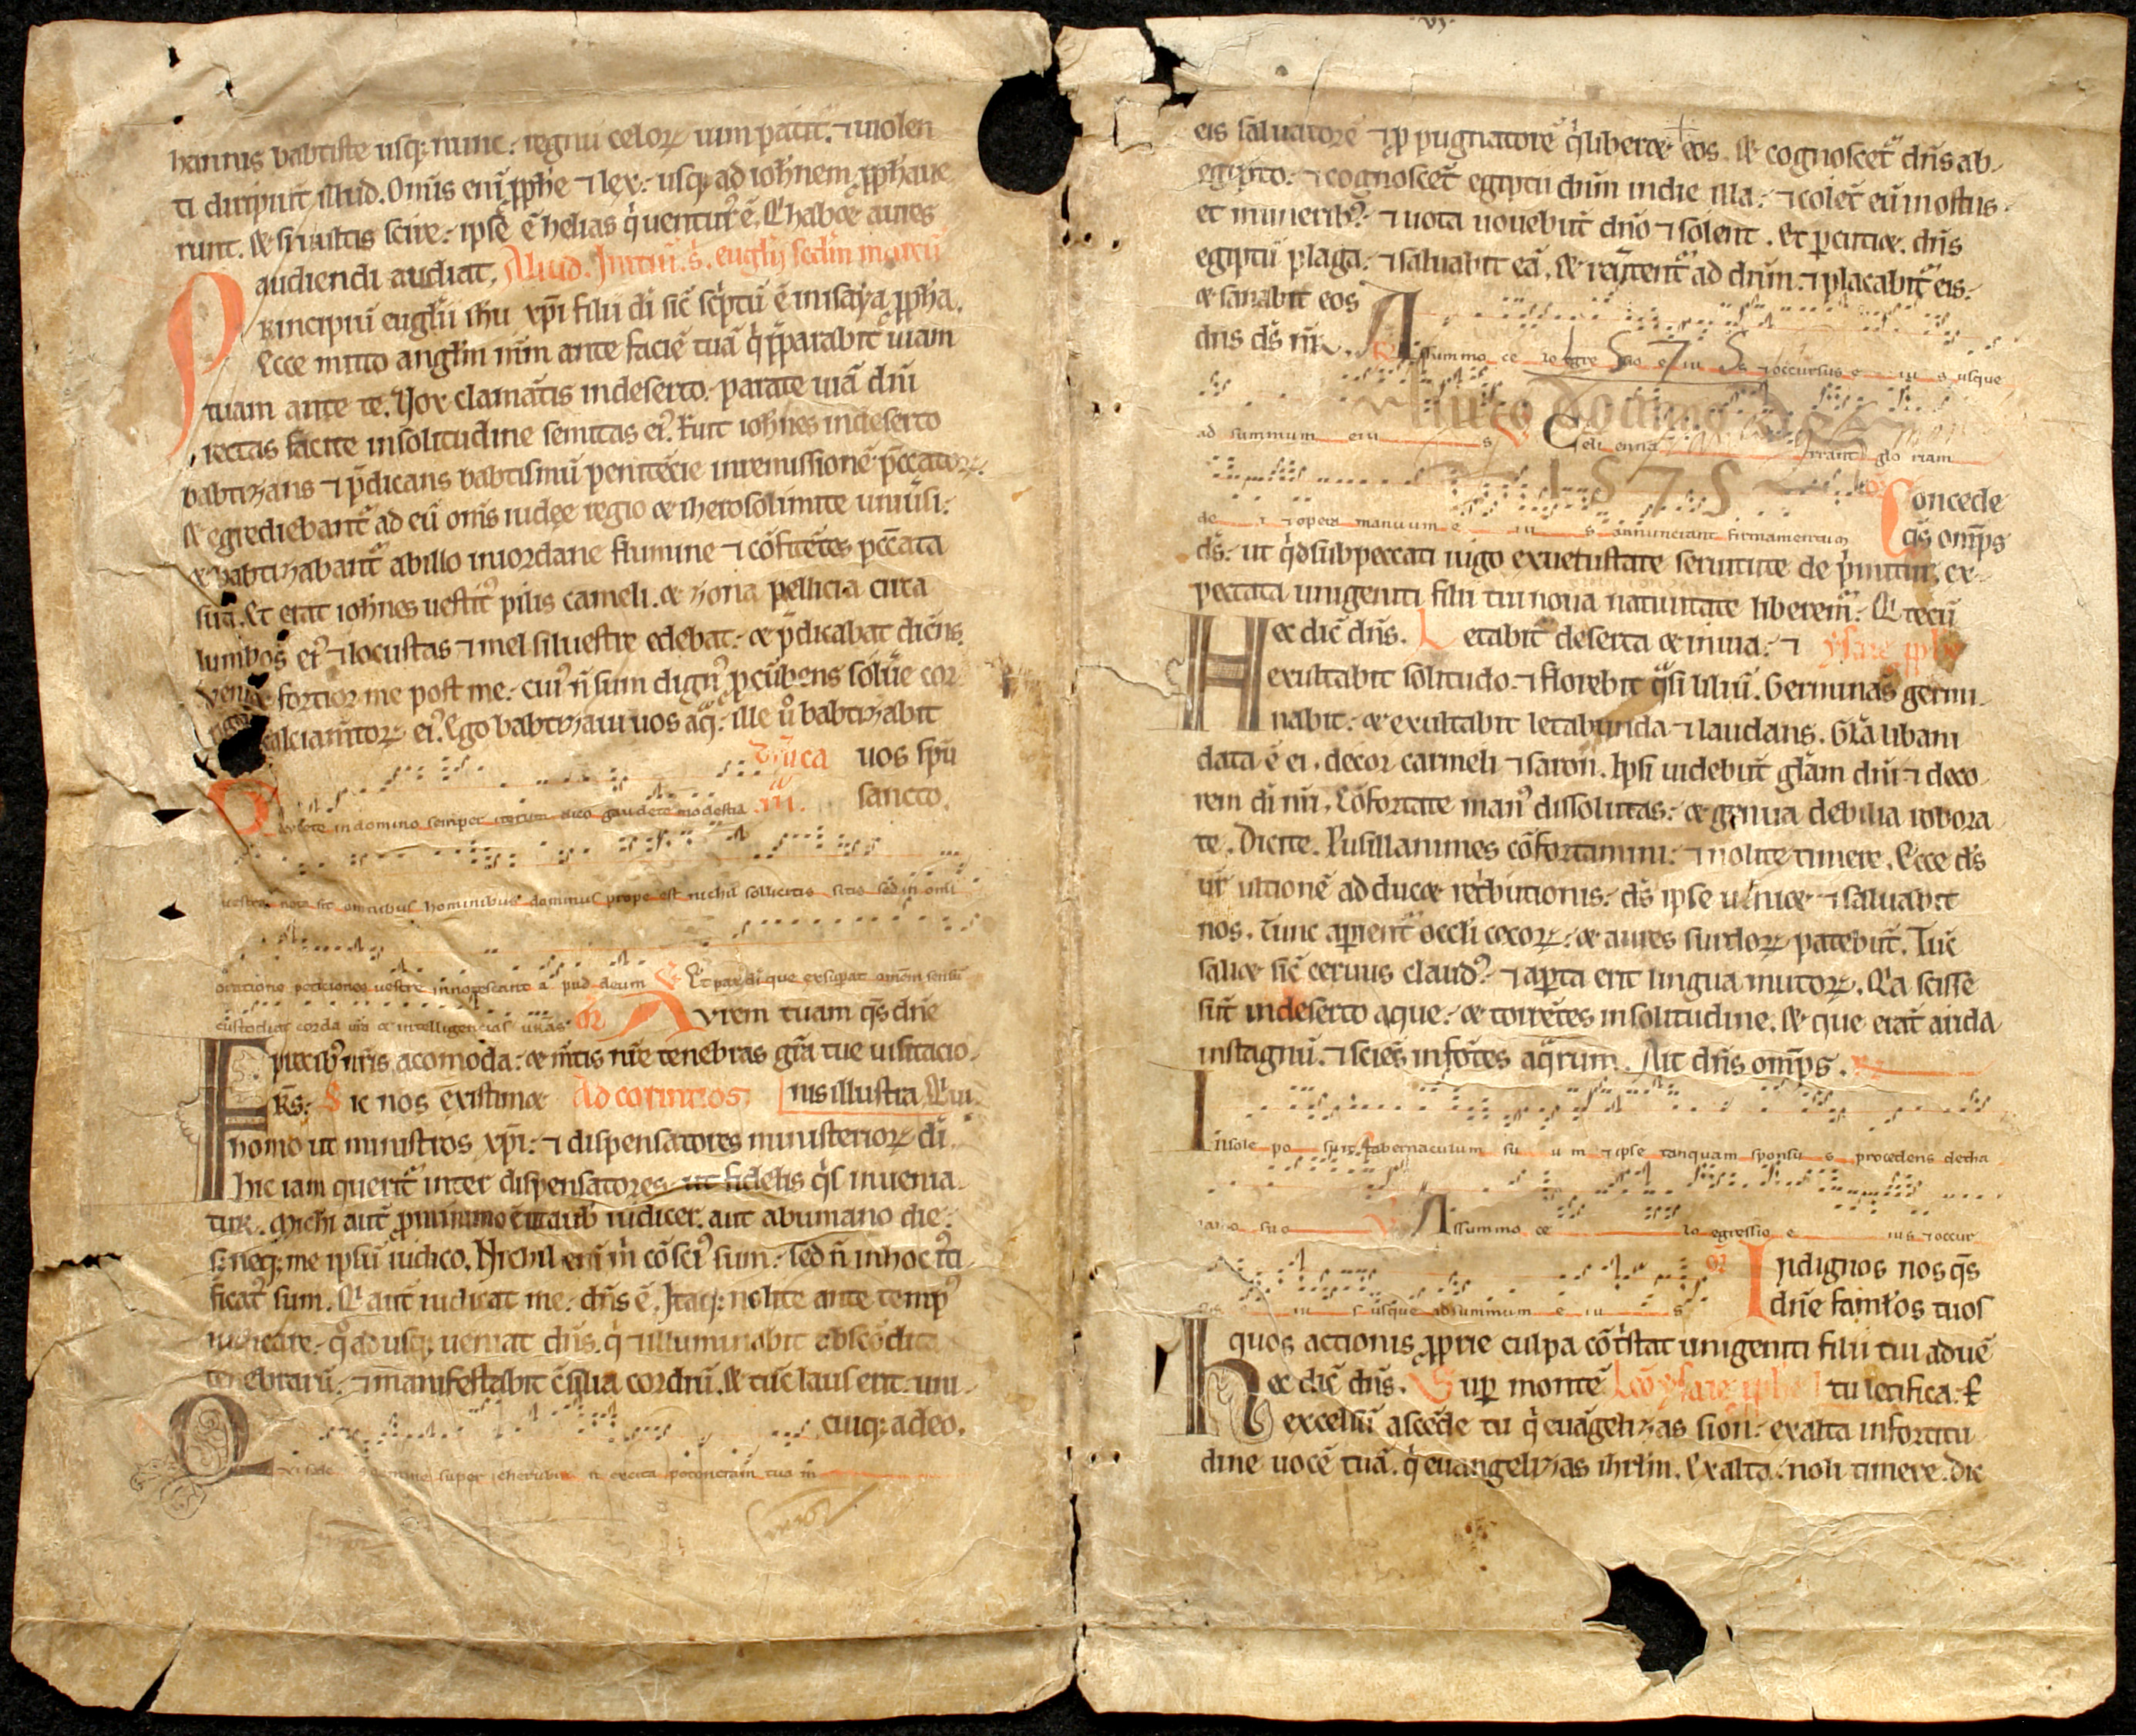 hannis babtiste usq; nunc. regnū celoꝝ uim patit᷑. ⁊ uiolen
ti diripiūt illud. Om̄s enī ꝓphe ⁊ lex. usq; ad ioh̄nem ꝓphaue
runt. & si uultis scire. ipsē ē helias q̇ uentur᷒ ē. Q' habꝫ aures
audiendi audiat. Aliud. Initiū. s. eugl̄ij scd̄m marcū
Principiū eugl̄ii ihu xp̄i filii dī sic̄ sc̓ptū ē in isaya ꝓpha.
Ecce mitto angl̄m m̄m ante faciē tuā q̇ p̄parabit uiam
tuam ante te. Vox clamātis in deserto. parate uiā dn̄i
rectas facite in solitudine semitas ei᷒. Fuit ioh̄nes in deserto
babtizans ⁊ p̄dicans babtismū penitēcie in remissionē pc̄catoꝝ.
& egrediebant᷑ ad eū om̄is iudee regio & iherosolimite uniūsi.
& babtizabant᷑ ab illo in iordane flumine ⁊ cōfitētes pc̄cata
sua. Et erat ioh̄nes uestit᷒ pilis cameli. & zona pellicia circa
lumbos ei᷒ ⁊ locustas ⁊ mel siluestre edebat. & p̄dicabat dicēns.
Venit fortior me post me. cui᷒ n̄ sum dign᷒ ꝓcūbens soluē cor
rigiā calciam̄toꝝ ei᷒. Ego babtizaui uos aq̄. ille ů babtizabit
uos spū
sancto.
Gaudete in domino semper iterum dico gaudete modestia
uestra nota sit omnibus hominibus dominus prope est nichil solliciti sitis sed in omi
oratione peticiones uestre innotescant a pud deum Et pax di que exsupat omēm sensū
custodiat corda ur̄a & intelligencias ur̄as or̄ Avrem tuam qs̄ dn̄e
p̄cib᷒ nr̄is acomoda. & m̄tis nr̄e tenebras gr̄a tue uisitacio
FRs̄. Sic nos ēxistimꝫ Ad corintios nis illustra. Qui
homo ut ministros xp̄i. ⁊ dispensatores ministerioꝝ di.
Hic iam querit᷑ inter dispensatores ut fidelis q̇s inuenia
tur. Michi aut̄ ꝓ minimo ē ut a uob̄ iudicer. aut ab umano die.
s; neq; me ipsū iudico. Nichil enī m̓ cōsci᷒ sum. sed n̄ in hoc i᷒ti
ficat᷒ sum. Q' aut̄ iudicat me. dn̄s ē. Itaq; nolite ante temp᷒
iudicare. q̊adusq; ueniat dn̄s. q̇ ⁊ illuminabit abscōdita
tenebrarū. ⁊ manifestabit c̄silia cordiū. & tūc laus erit uni
cuiq; a deo.
Qui sedes domine super cherubin excita potenciam tua m
eis saluatorē ⁊ ꝓpugnatorē q̇ liberꝫ eos. & cognoscet᷑ dn̄s ab
egipto. ⁊ cognoscēt egiptii dn̄m in die illa. ⁊ colēt eū in ostiis
et munerib᷒. ⁊ uota uouebūt dn̄o ⁊ soluent. Et ꝑcutiꝫ dn̄s
egiptū plaga. ⁊ sanabit eā. & reūtent᷑ ad dn̄m. ⁊ placabit᷑ eis.
& sanabit eos
dn̄s ds̄ nr̄.
A summo ce lo egre ssio e iu s ⁊ occursus e iu s usque
1575
Anno domini
ad summum eiu s Celi enna rrant glo riam
1575
Concede
de i ⁊ opera manuum e iu s annunciant firmamentum qs̄ omp̄s
ds̄. ut q̇ sub peccati iugo ex uetustate seruitute deprimimur, ex
pectata unigeniti filii tui noua natiuitate liberem᷑. Q' tecū
Hec dic̄ dn̄s. Letabit᷑ deserta & inuia. ⁊ ysaie ꝓphe
exultabit solitudo. ⁊ florebit q̄si liliū. Germinas̄ germi
nabit. & exultabit letabunda ⁊ laudans. Gl̄a libani
data ē ei. decor carmeli ⁊ saron. Ipsi uidebūt gl̄am dn̄i ⁊ deco
rem di nr̄i. Cōfortate man᷒ dissolutas. & genua debilia robora
te. Dicite. Pusillanimes cōfortamini. ⁊ nolite timere. Ecce ds̄
ur̄ ultionē adducꝫ ret̓butionis. ds̄ ipse ueniꝫ ⁊ saluabit
nos. Tunc aꝑient᷑ occl̄i cecoꝝ. & aures surdoꝝ patebūt. Tūc
saliꝫ sic̄ ceruus claud᷒. ⁊ aꝑta erit lingua mutoꝝ. Q'a scisse
sūt in deserto aque. & torrētes in solitudine. & que erat arida
in stagnū. ⁊ sciēs in fōtes aq̄rum. Ait dn̄s omp̄s.
In sole po suit tabernaculum su u m ⁊ ipse tanquam sponsu s procedens de tha
lamo suo A summo ce lo egressio e ius ⁊ occur
sus e iu s usque ad summum e iu s or̄ Indignos nos qs̄
dn̄e famł̄os tuos
quos actionis ꝓprie culpa cōt̓stat unigeniti filii tui aduē
Hec dic̄ dn̄s. Suꝑ montē Leō ysaie ꝓphe tu letifica. Q
excelsū ascēde tu q̇ euāgelizas sion. exalta in fortitu
dine uocē tuā. q̇ euangelizas ihrl̄m. Exalta. noli timere. Dic